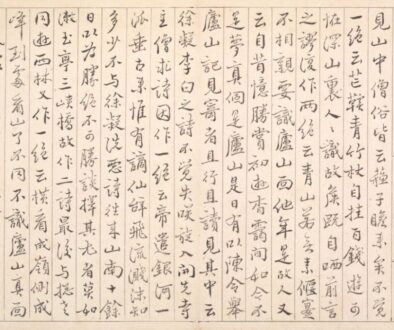 見山中僧俗皆云蘇子瞻來矣不覺
一絕云芒鞵青竹杖自挂百錢遊可
怪深山裏人人識故侯既自哂前言
之謬復作兩絕云青山若無素偃蹇
不相親要識廬山面他年是故人又
云自昔憶勝賞初遊杳靄間如今不
是夢真個是廬山是日有以陳令舉
廬山記見寄者且行且讀見其中云
徐凝李白之詩不覺失笑旋入開先寺
主僧求詩因作一絕云帝遣銀河一
派垂古來惟有謫仙辭飛流濺沫知
多少不与徐凝洗惡詩往來山南十餘
日以為勝絕不可勝談擇其尤者莫如
漱玉亭三峽橋故作二詩最後与摠老
同遊西林又作一絕云橫看成嶺側成
峰到處看山了不同不識廬山真面